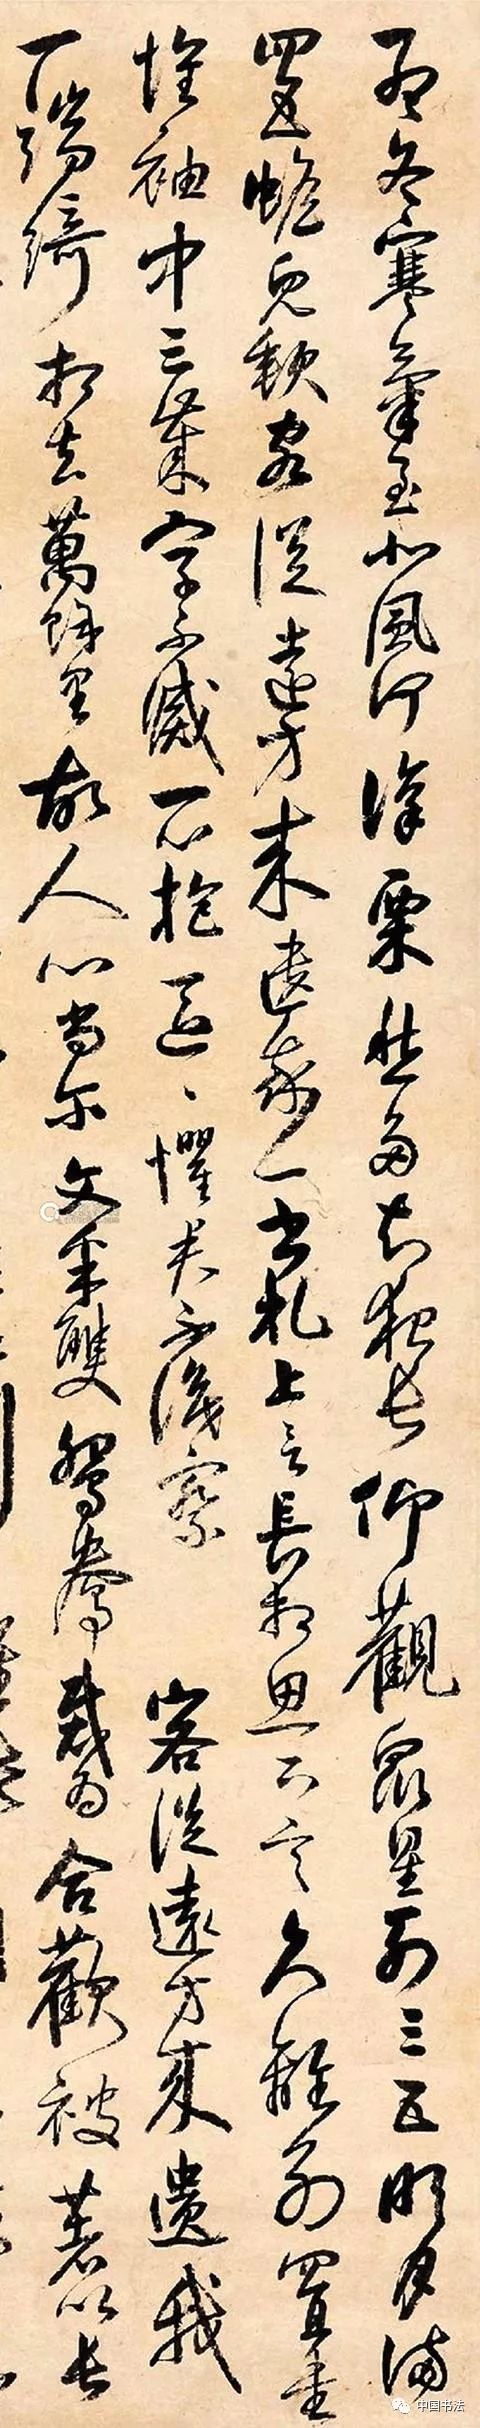 孟冬寒氣至北風何慘栗愁多知夜長仰觀衆星列三五明月滿
四五蟾兔缺客從遠方來遺我一書札上言長相思下言久離別置書
懷袖中三歲字不滅一心抱區〻懼君不識察 客從遠方來遺我
一端綺相去萬餘里故人心尚爾文采雙鴛鴦裁為合歡被著以長
中国书法